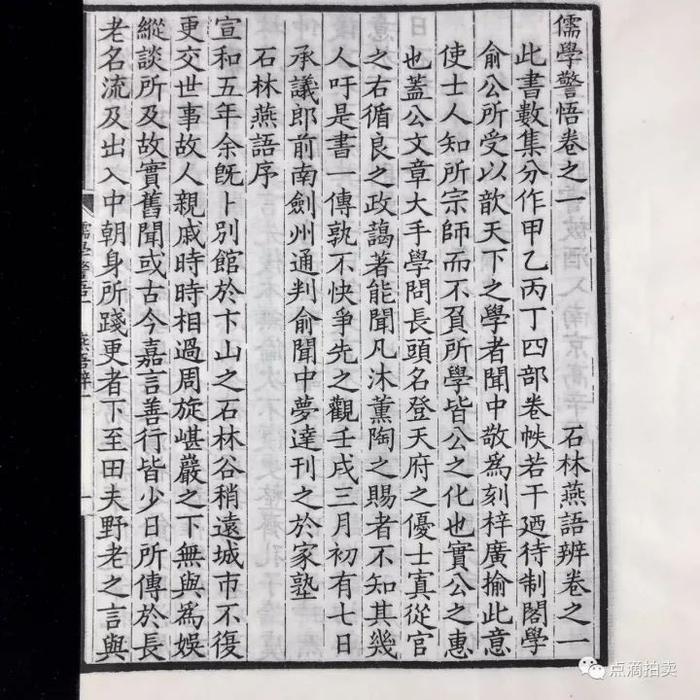 儒學警悟卷之一 石林燕語辨卷之一
此書數集分作甲乙丙丁四部卷帙若干廼待制閣學
俞公所受以歆天下之學者聞中敬爲刻梓廣揄此意
使士人知所宗師而不負所學皆公之化也實公之惠
也蓋公文章大手學問長頭名登天府之優士寘從官
之右循良之政藹著能聞凡沐薰陶之賜者不知其幾
人吁是書一傳孰不快爭先之觀壬戌三月初有七日
承議郎前南劍州通判俞聞中夢達刊之於家塾
石林燕語序
宣和五年余旣卜別館於卞山之石林谷稍遠城市不復
更交世事故人親戚時時相過周旋嵁巖之下無與爲娛
縱談所及故實舊聞或古今嘉言善行皆少日所傳於長
老名流及出入中朝身所踐更者下至田夫野老之言與
儒學警悟 燕語辨一 一
点滴拍卖